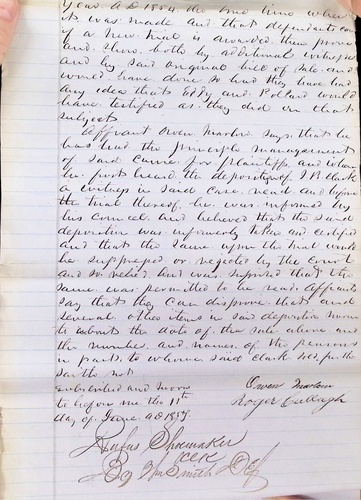 Year A.D 1854. the true time when
it was made and that defendants can
if a new trial is awarded them prove
and show both by additional witnesses
and by said original bill of sale and
would have done so had they have had
any idea that Eddy and Pollard would
have testified as they did on that
subject
Affiant Owen says that he
has had the principle management
of said cause for plaintiffs and when
he first heard the deposition of J R Clark
a witness in said case read and before
the trial thereof he was informed by
his councel and believed that the said
deposition was informerly taken and certified
and that the same upon the trial would
be suppresed or rejected by the Court
and so relied but was suprised that the
same was permitted to be read affiants
say that they can disprove that and
several other items in said deposition
as to the date of the sale above and
the number and names of the persons
in parts to whom said Clark
saith not
subscribed and sworn
to before me this 11th
day of June A.D 1857.
Owen
Roger
Rufus Shoemaker
Clk
By Wm Smith